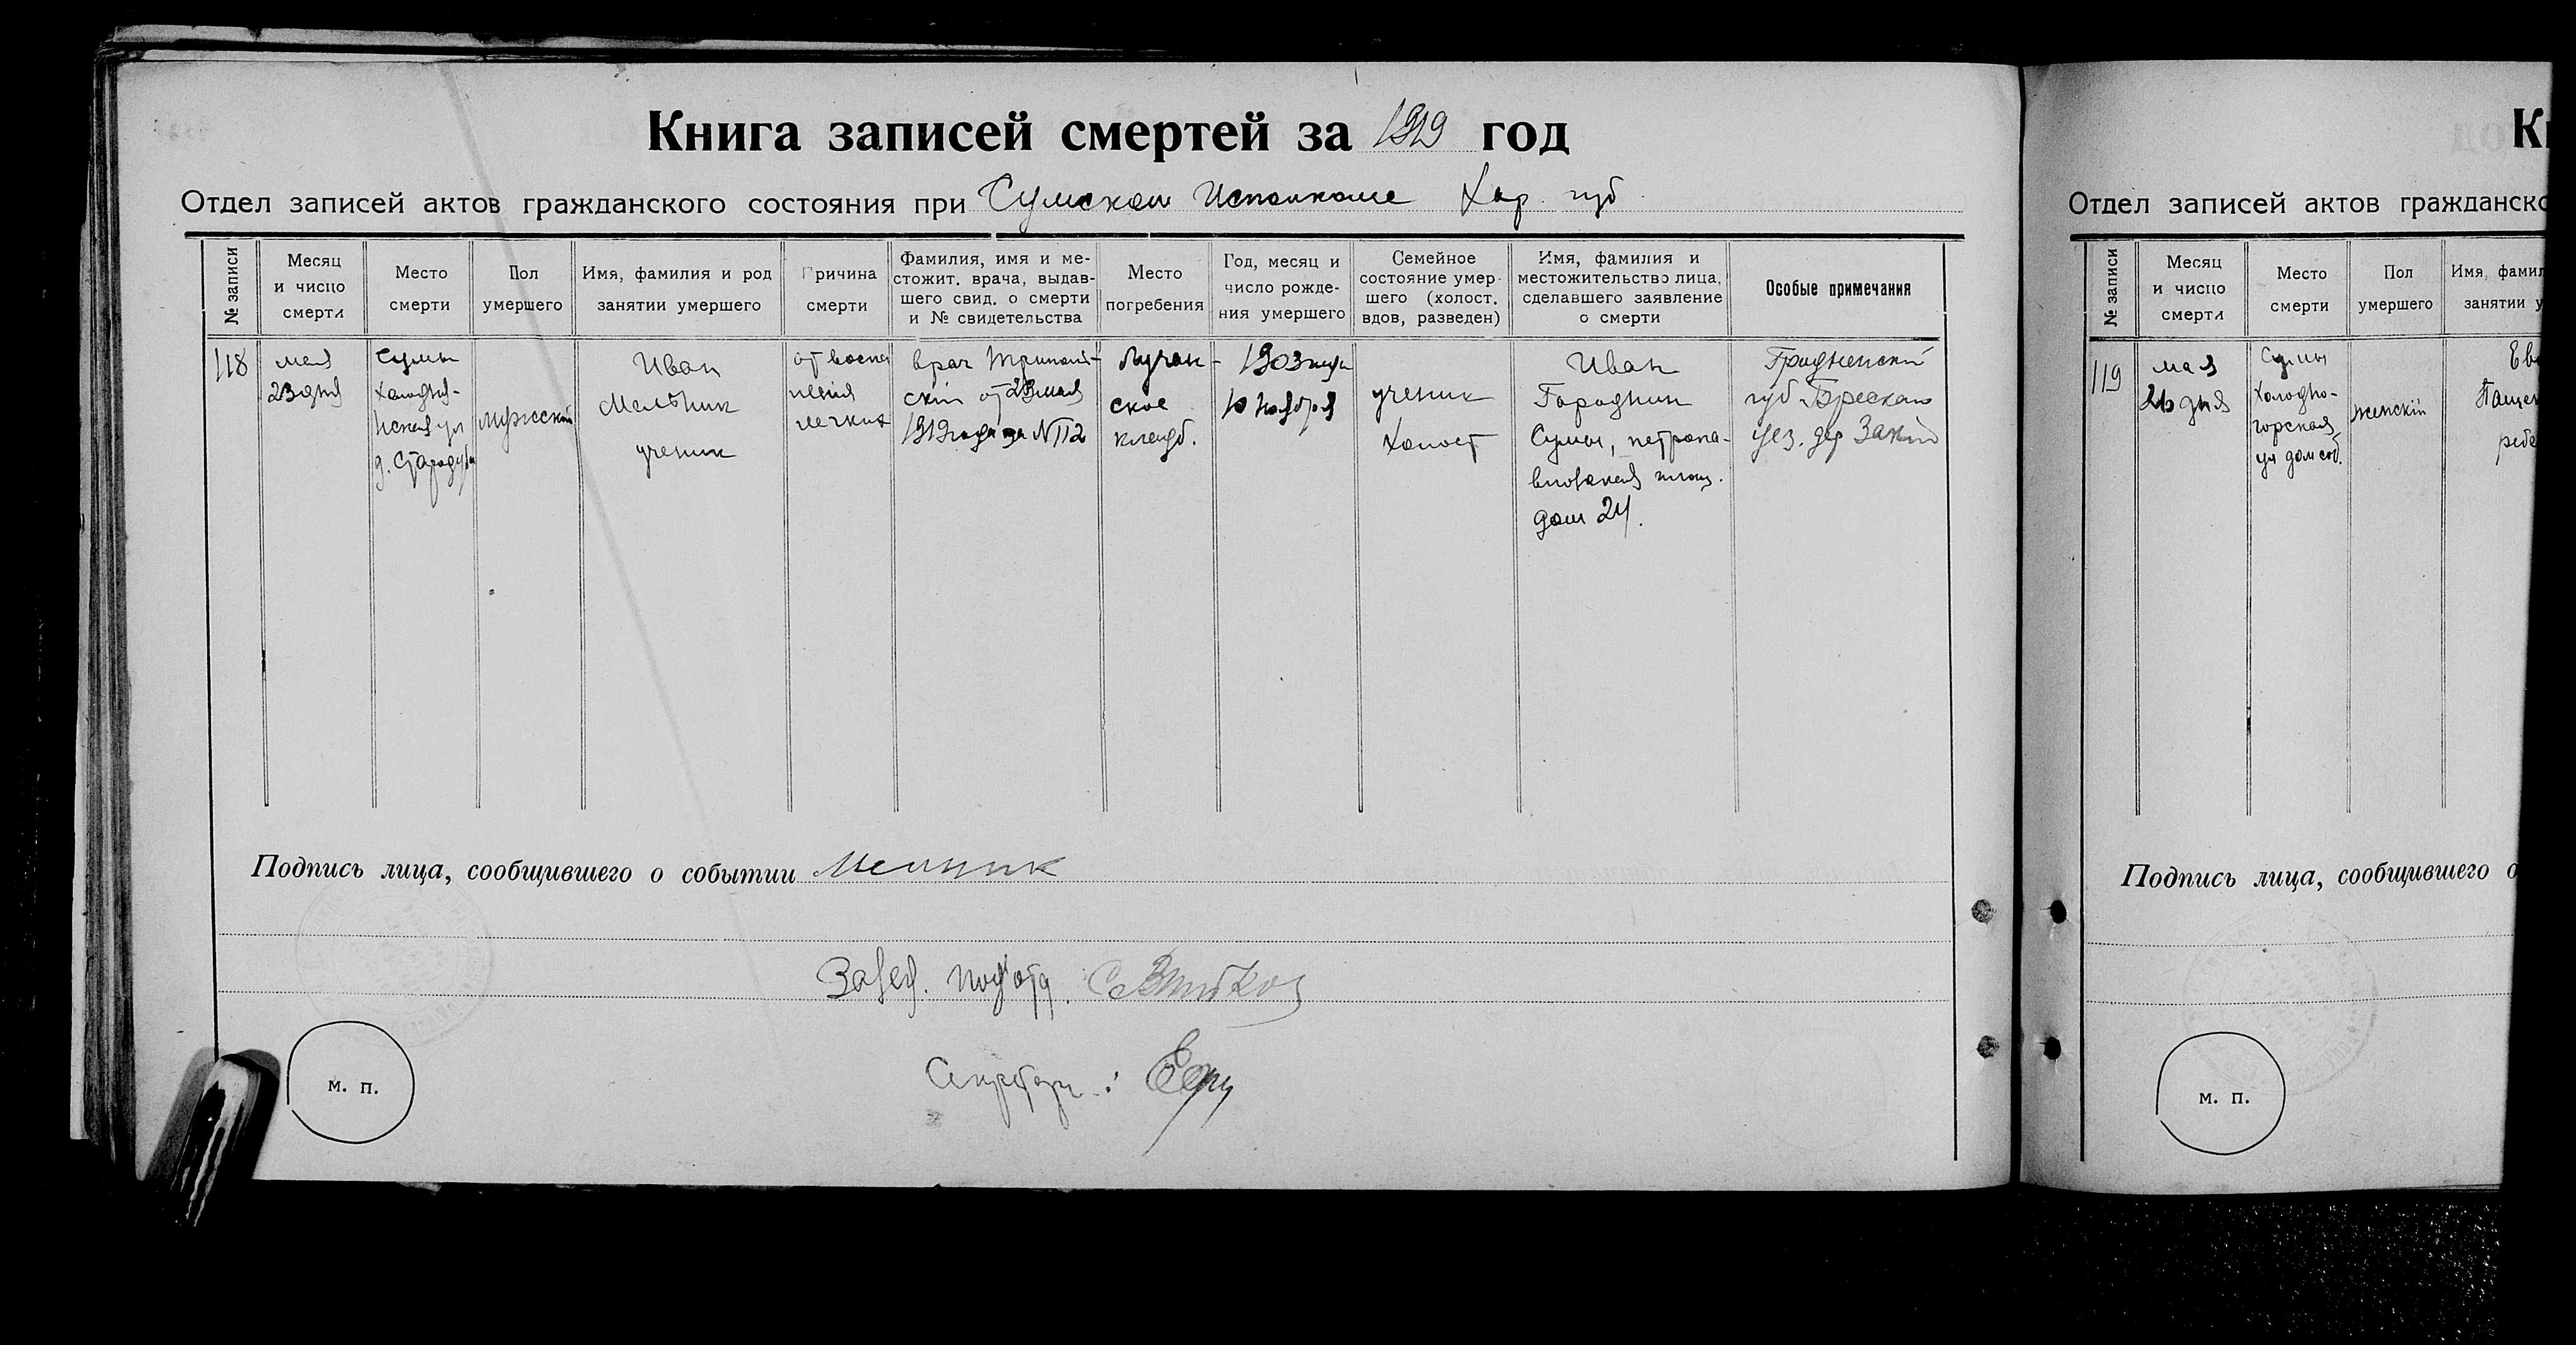 Книга записей смертей за 1919 год
Отдел записей актов гражданского состояния при Сумском Исполкоме Хар. губ
№ записи
Месяц
и число
смерти
Место
смерти
Пол
умершего
Имя, фамилия и род
занятии умершего
Причина
смерти
Фамилия, имя и ме-
стожит. врача, выдав-
шего свид. о смерти
и № свидетельства
Место
погребения
Год, месяц и
число рожде-
ния умершего
Семейное
состояние умер-
шего (холост,
вдов, разведен)
Имя, фамилия и
местожительство лица,
сделавшего заявление
о смерти
Особые примечания
118
мая
23 дня
Сумы
ул
д.
мужской
Иван
Мельник
ученик
от воспа
ления
легких
врач
от 23 мая
1919 года за № 112
Лучан-
ское
кладб.
1903 года
10 ноября
ученик
холост
Иван
Городнин
Сумы, петропа-
вловская площ.
дом 24.
Гродненской
губ Брескаго
уез. дер
Подпись лица, сообщившего о событии Мелник
Завед. под'отд.
Секретарь:
м. п.
К
Отдел записей актов гражданско
№ записи
Месяц
и число
смерти
Место
смерти
Пол
умершего
Имя, фамил
занятии у
119
мая
дня
Сумы
Холодно-
горская
ул дом соб.
женскій
Ев
Пащен
ребе
Подпись лица, сообщившего о
м. п.